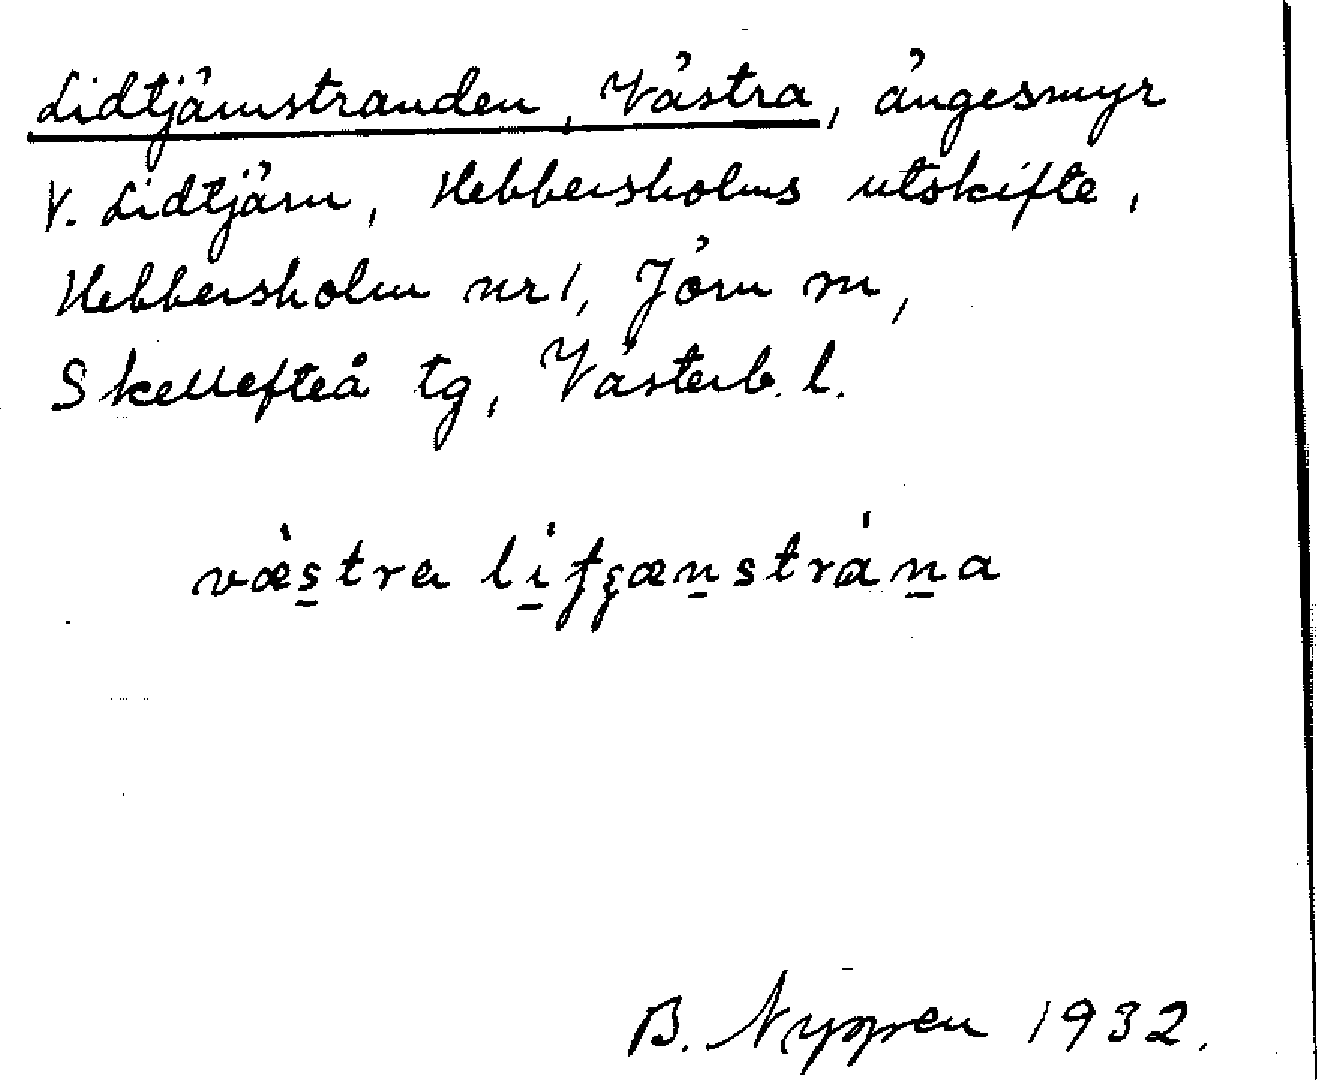 Lidtjärnstranden, Västra, ängesmyr
V. Lidtjärn, Hebbersholms utskifte,
Hebbersholm nr 1, Jörn sn,
Skellefteå tg, Västerb. l.
væ̀stra lit̯ʂænstrána
B. Nyppen 1932.